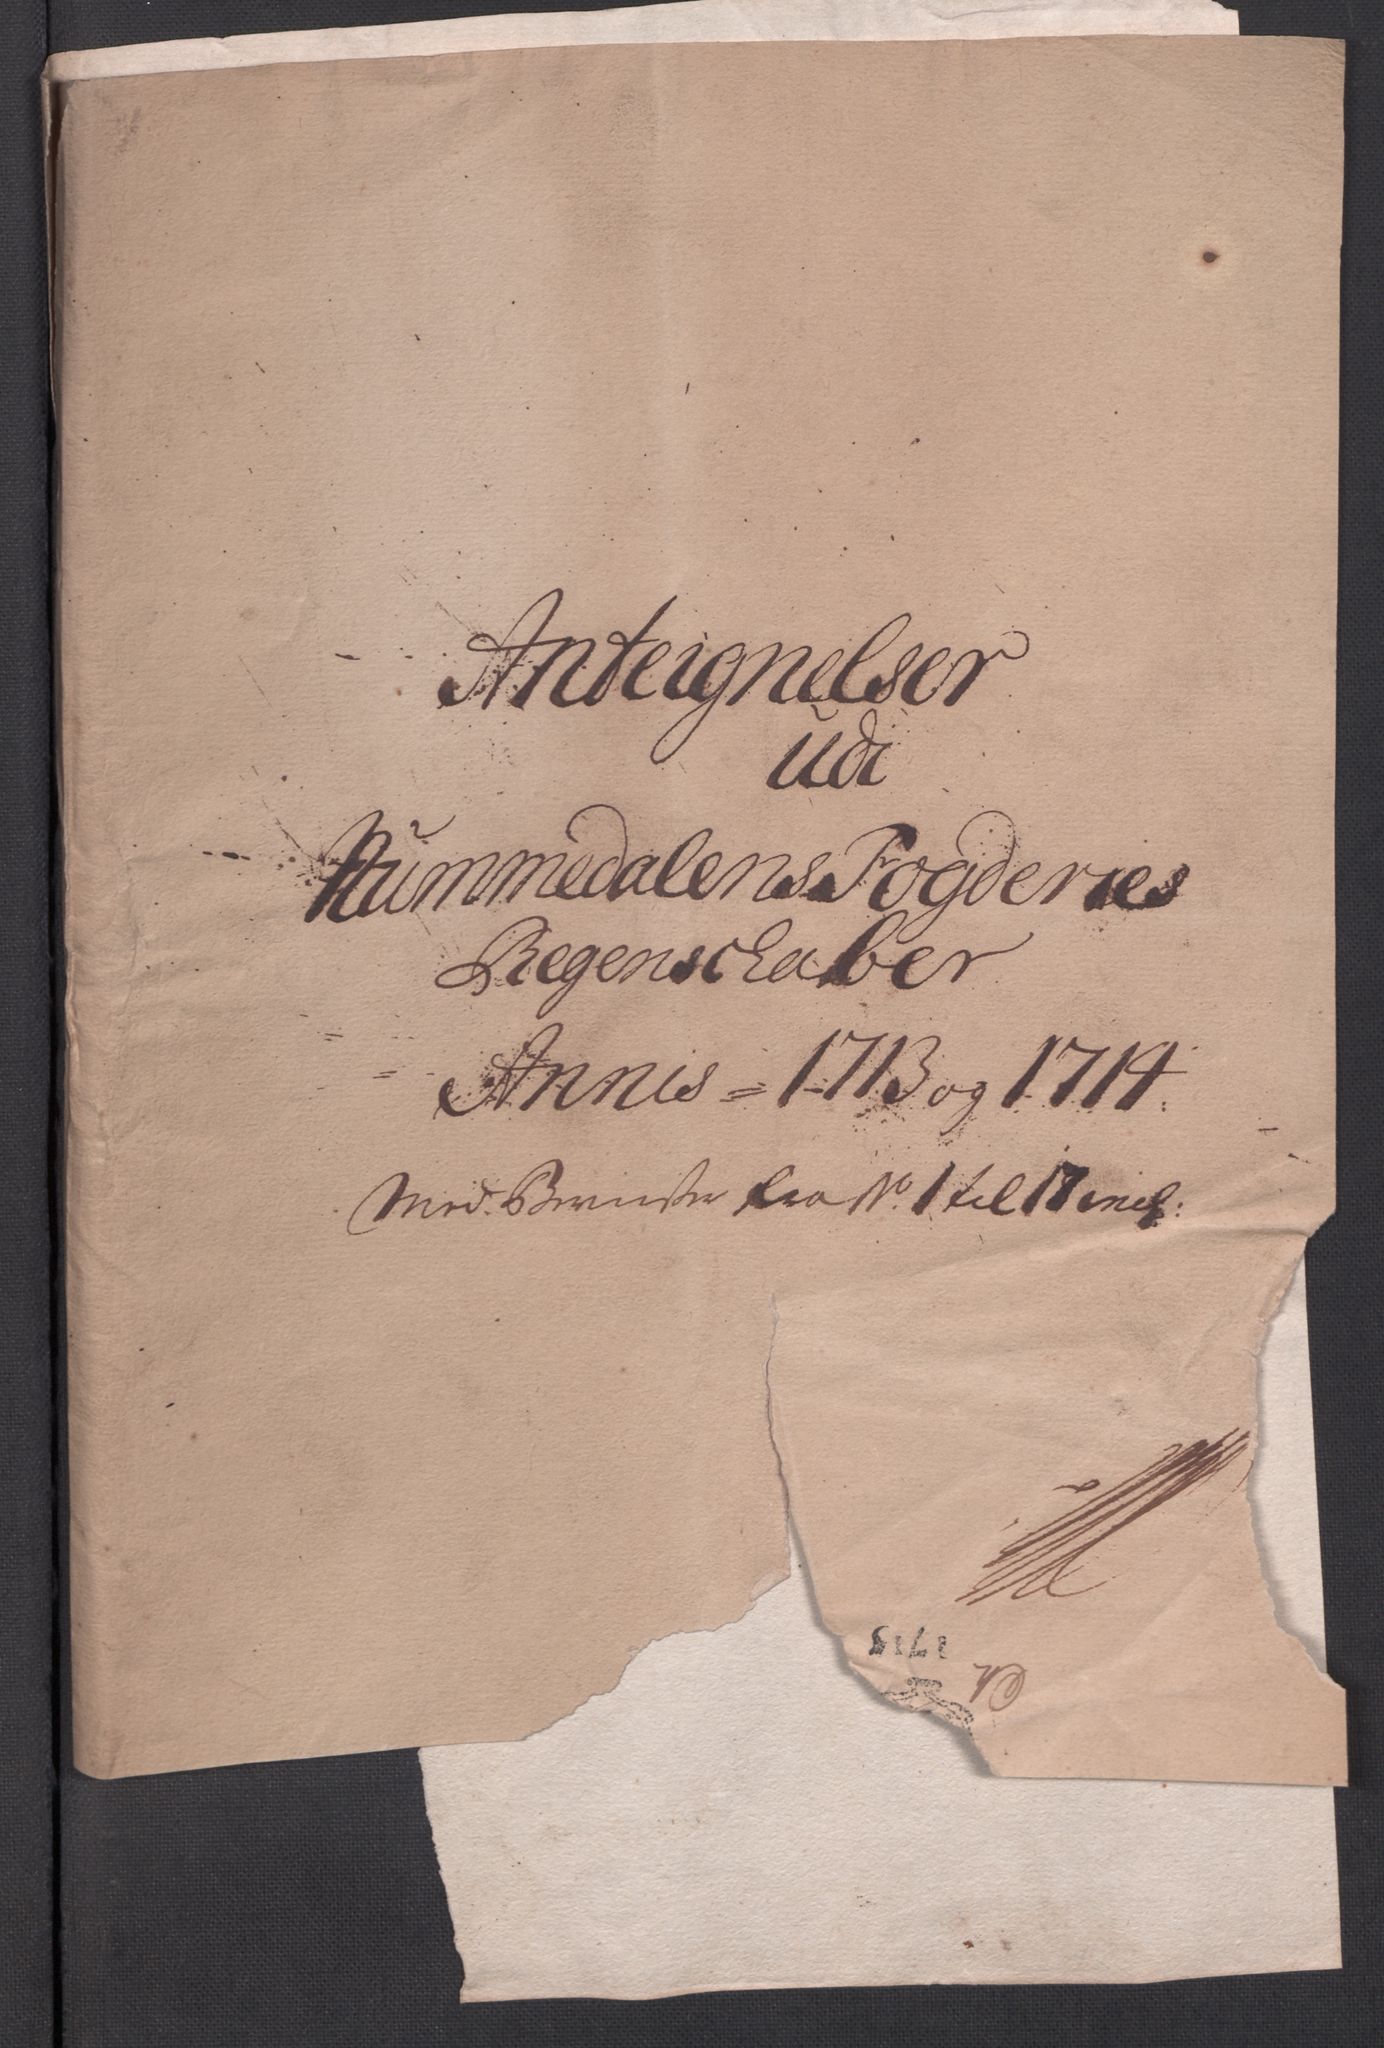 Anteignelser
udi
Nummedalens Fogderies
Regenschaber
Annis = 1713 og 1714.
Med Beviiser fra No. 1 til 17 incl: